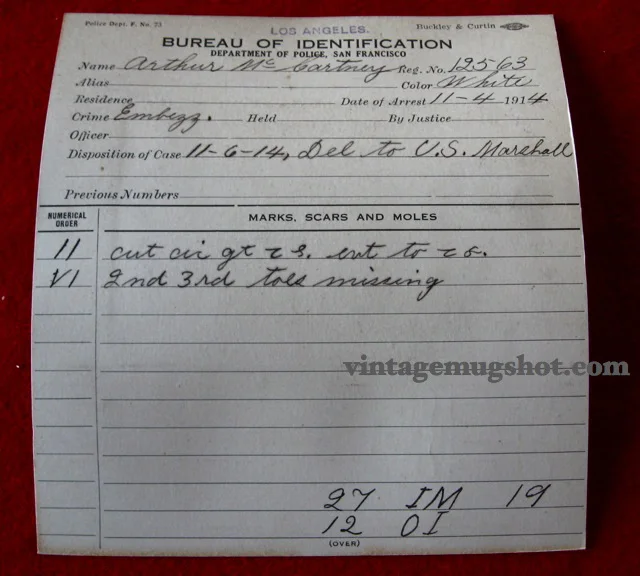 Police Dept. F. No. 23
Buckley & Curtin
LOS ANGELES.
BUREAU OF IDENTIFICATION
DEPARTMENT OF POLICE, SAN FRANCISCO
Name Arthur McCartney Reg. No. 12563
Alias Color White
Residence Date of Arrest 11-4 1914
Crime Embezz. Held By Justice
Officer
Disposition of Case 11-6-14, Del to U.S. Marshall
Previous Numbers
NUMERICAL ORDER MARKS, SCARS AND MOLES
II cut cir gt
VI 2nd 3rd toes missing
vintagemugshot.com
27 IM 19
12 OI
(OVER)